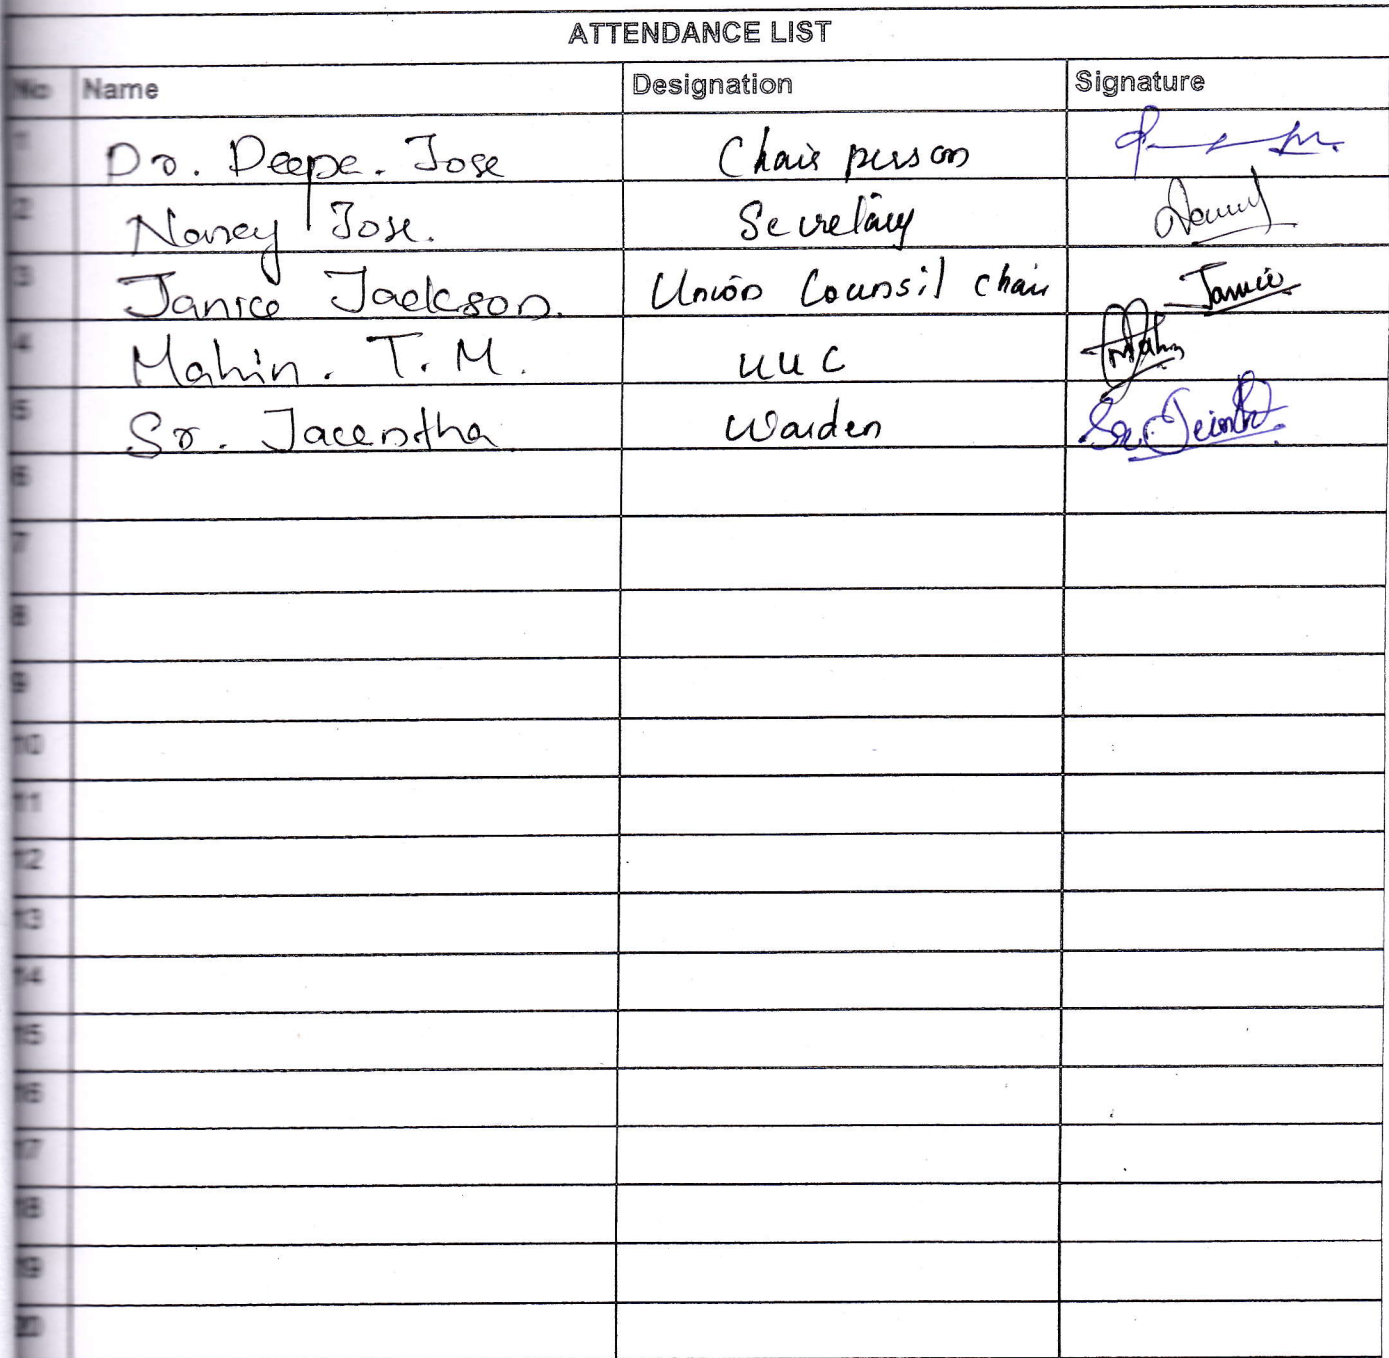 ATTENDANCE LIST
No Name Designation Signature
1 Dr. Deepa. Jose Chair person
2 Nancy Jose. Secretary
3 Janice Jackson. Union Counsil Chair Janice
4 Mahin. T. M. UUC
5 Sr. Jacentha Warden
6
7
8
9
10
11
12
13
14
15
16
17
18
19
20